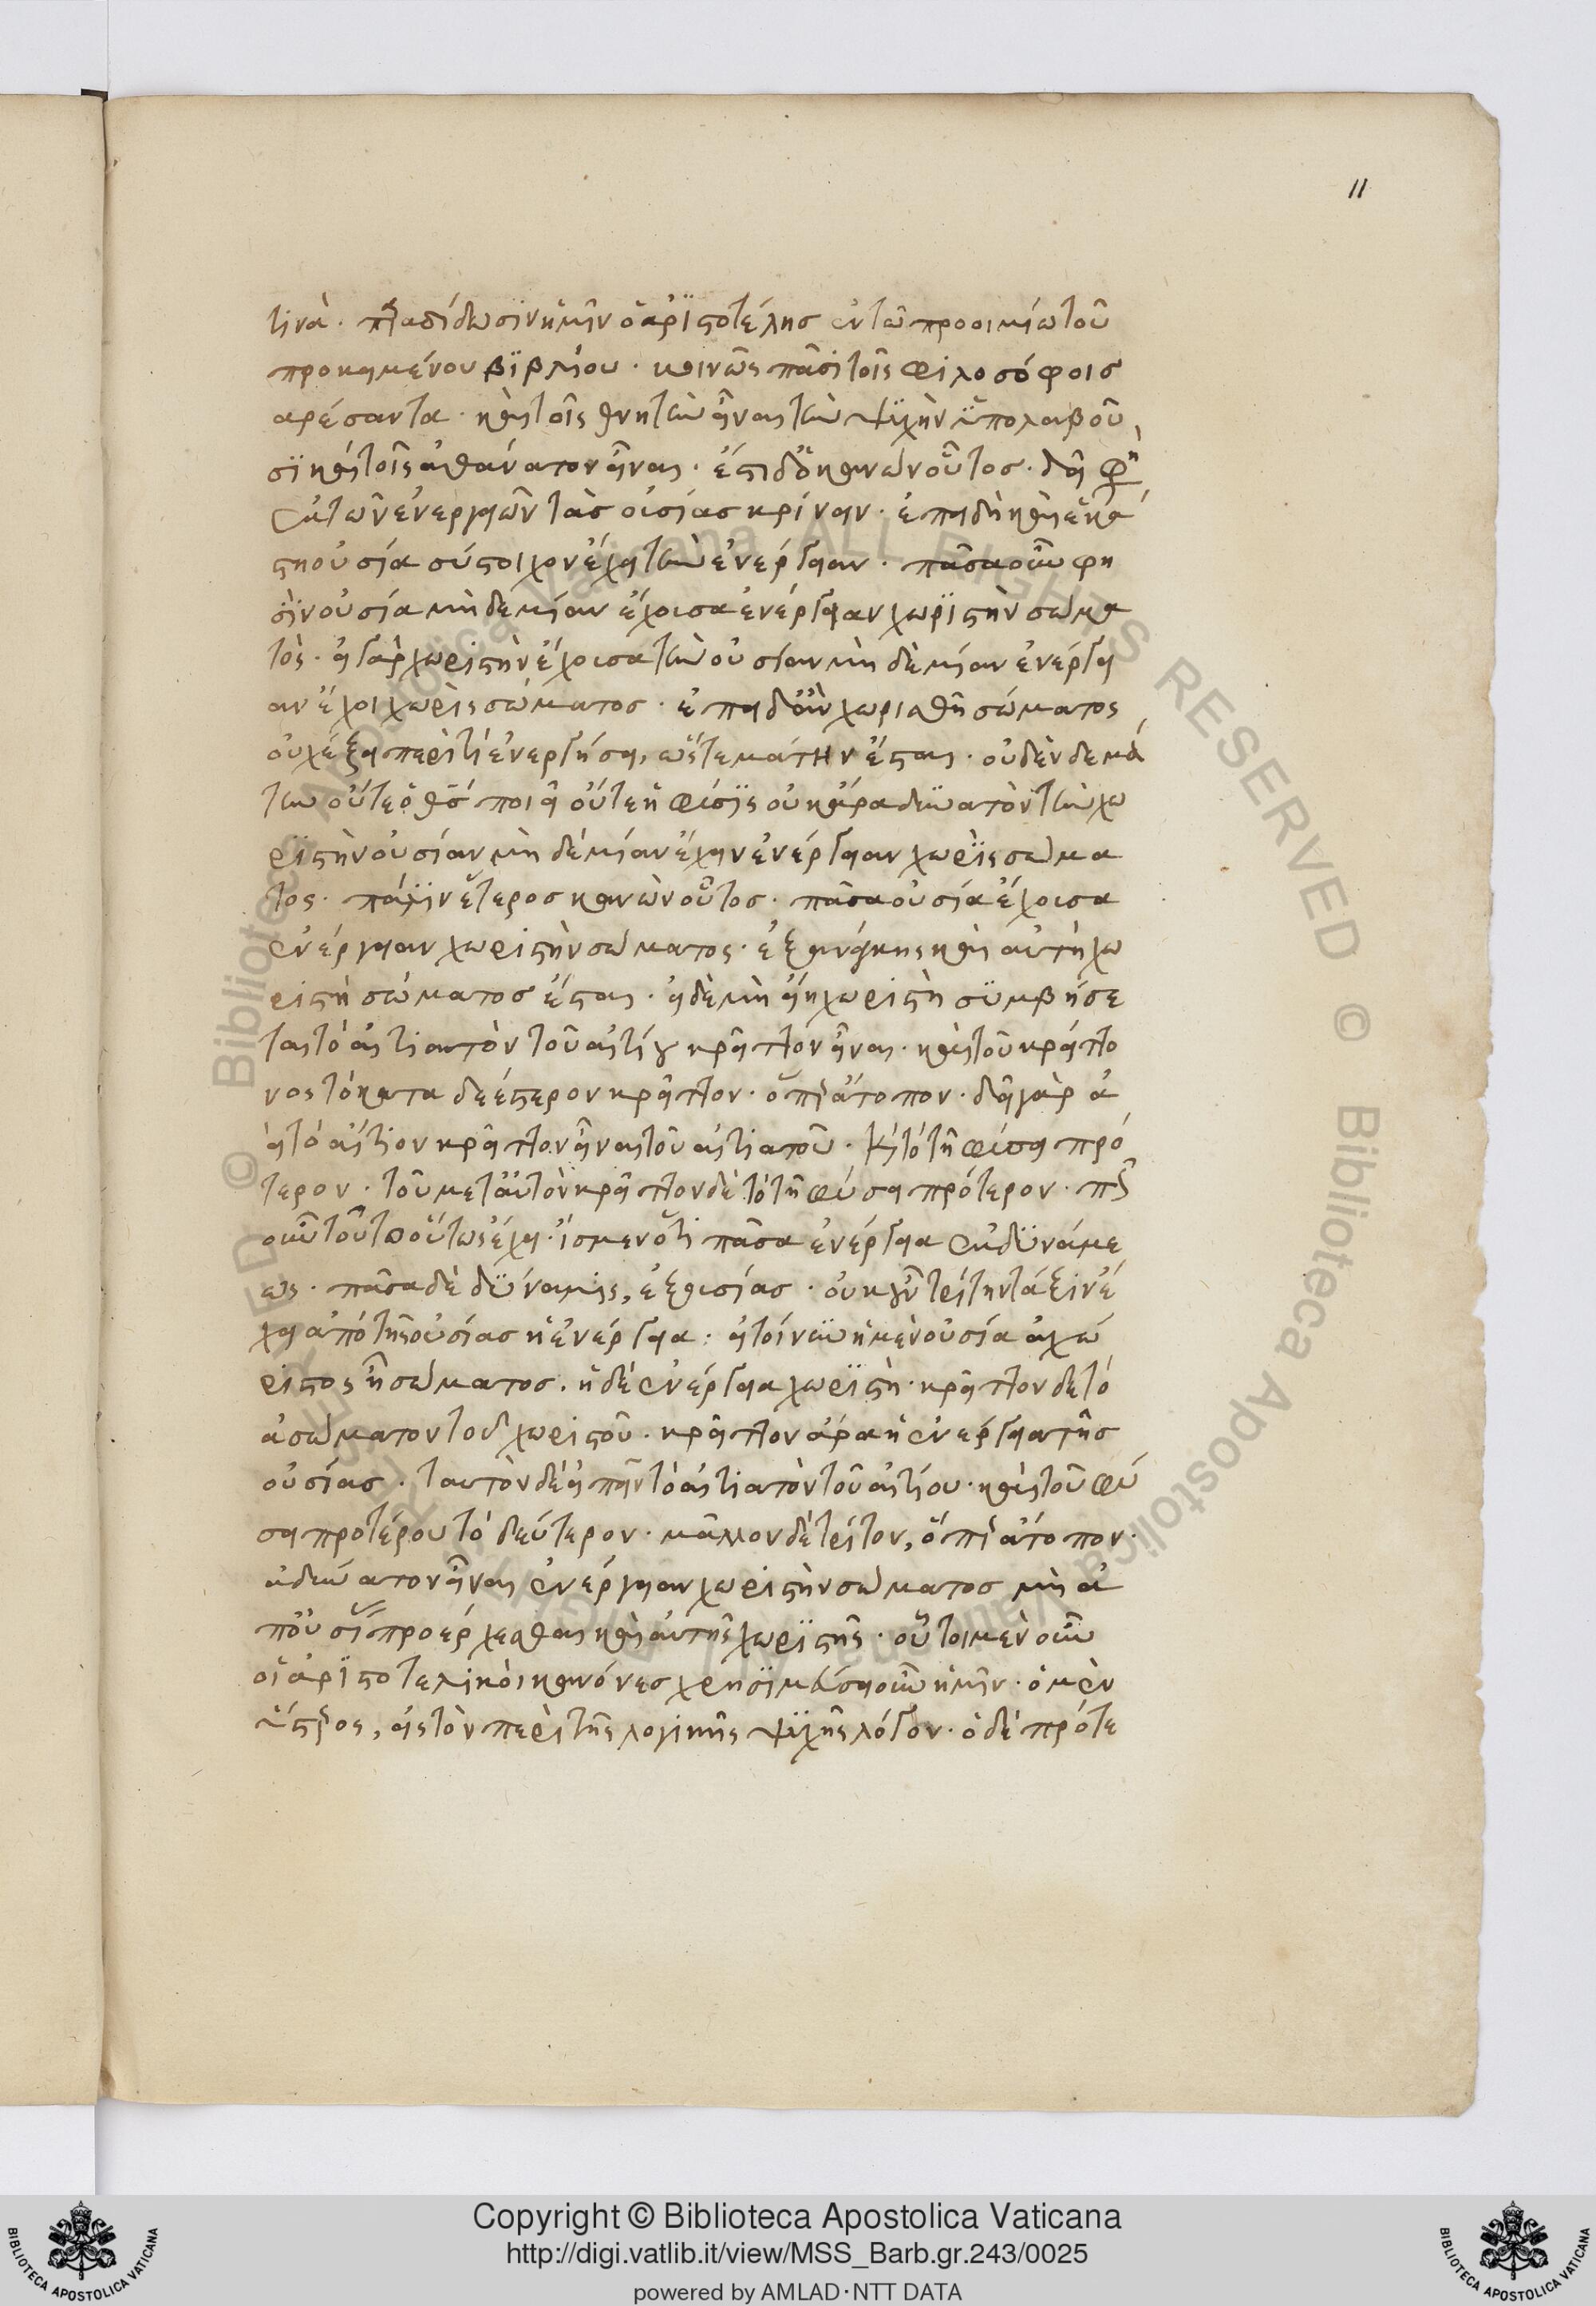 11
τινὰ. παραδίδωσιν ἡμῖν ὁ ἀριστοτέλης ἐν τῶ προοιμίω τοῦ
προκειμένου βιβλίου. κοινῶς πᾶσι τοῖς φιλοσόφοις
αρέσαντα. καὶ τοῖς θνητὴν εἶναι τὴν ψυχὴν ὑπολαβοῦ
σι καὶ τοῖς ἀθάνατον εἶναι. ἔστι δὲ ὁ κανὼν οὗτος. δεῖ φησὶν
ἐκ τῶν ἐνεργειῶν τὰς οὐσίας κρίνειν. ἐπειδὴ καὶ ἑκά
στη οὐσία σύστοιχον ἔχει τὴν ἐνέργειαν. πᾶσα οὖν φη
σὶν οὐσία μηδεμίαν ἔχουσα ἐνέργειαν χωριστὴν σώμα
τὸς. εἰ γὰρ χωριστὴν ἔχουσα τὴν οὐσίαν μηδὲ μίαν ἐνέργει
αν ἔχοι χωρὶς σώματος. ἐπειδὰν χωρισθῆ σώματος
οὐχ ἕξει περὶ τί ἐνεργήσει, ὥστε μάτην ἔσται. οὐδὲν δε μά
την οὔτε ὁ θεός ποιεῖ οὔτε ἡ φύσις οὐκ ἄρα δυνατὸν τὴν χω
ριστὴν οὐσίαν μὴ δὲ μίαν ἔχειν ἐνέργειαν χωρὶς σώμα
τος. πάλιν ἕτερος κανὼν οὗτος. πᾶσα οὐσία ἔχουσα
ἐνέργειαν χωριστὴν σώματος. ἐξ ἀνάγκης καὶ αὐτὴ χω
ριστὴ σώματος ἔσται. εἰ δὲ μὴ εἴη χωριστὴ συμβήσε
ται τὸ αἰτιατὸν τοῦ αἰτίου κρεῖττον εἶναι. καὶ τοῦ κρείττο
νος τὸ κατα δεέστερον κρεῖττον. ὅπερ ἄτοπον. δεῖ γὰρ ἀ
εὶ τὸ αἴτιον κρεῖττον εἶναι τοῦ αἰτιατοῦ. καὶ τὸ τῆ φύσει πρό
τερον. τοῦ μετ αὐτὸν κρεῖττον δὲ τὸ τῆ φύσει πρότερον. πῶς
οὖν τοῦτο οὕτως ἔχει. ἴσμεν ὅτι πᾶσα ἐνέργεια ἐκ δυνάμε
ως. πᾶσα δὲ δύναμις, ἐξ οὐσίας. οὐκοῦν τρίτην τάξιν ἔ
χει ἀπὸ τῆς οὐσίας ἡ ἐνέργεια. εἰ τοίνυν ἡ μὲν οὐσία ἀχώ
ριστος ἦ σώματος. ἡ δὲ ἐνέργεια χωριστὴ. κρεῖττον δε τὸ
ἀσώματον τοῦ χωριστοῦ. κρεῖττον ἄρα ἡ ἐνέργεια τῆς
οὐσίας. ταυτὸν δὲ εἰπεῖν τὸ αἰτιατὸν τοῦ αἰτίου. καὶ τοῦ φύ
σει προτέρου τὸ δεύτερον. μᾶλλον δὲ τρίτον, ὅπερ ἄτοπον.
ἀδύνατον εἶναι ἐνέργειαν χωριστὴν σώματος μὴ ἀ
π οὐσίας προέρχεσθαι καὶ αὐτῆς χωριστῆς. οὗτοι μὲν οὖν
οἱ ἀριστοτελικοὶ κανόνες χρησιμεύσει οὖν ἡμῖν. ὁ μὲν
ὕστερος, εἰς τὸν περὶ τῆς λογικῆς ψυχῆς λόγον. ὁ δὲ πρότε
Copyright © Biblioteca Apostolica Vaticana
http://digi.vatlib.it/view/MSS_Barb.gr.243/0025
powered by AMLAD·NTT DATA